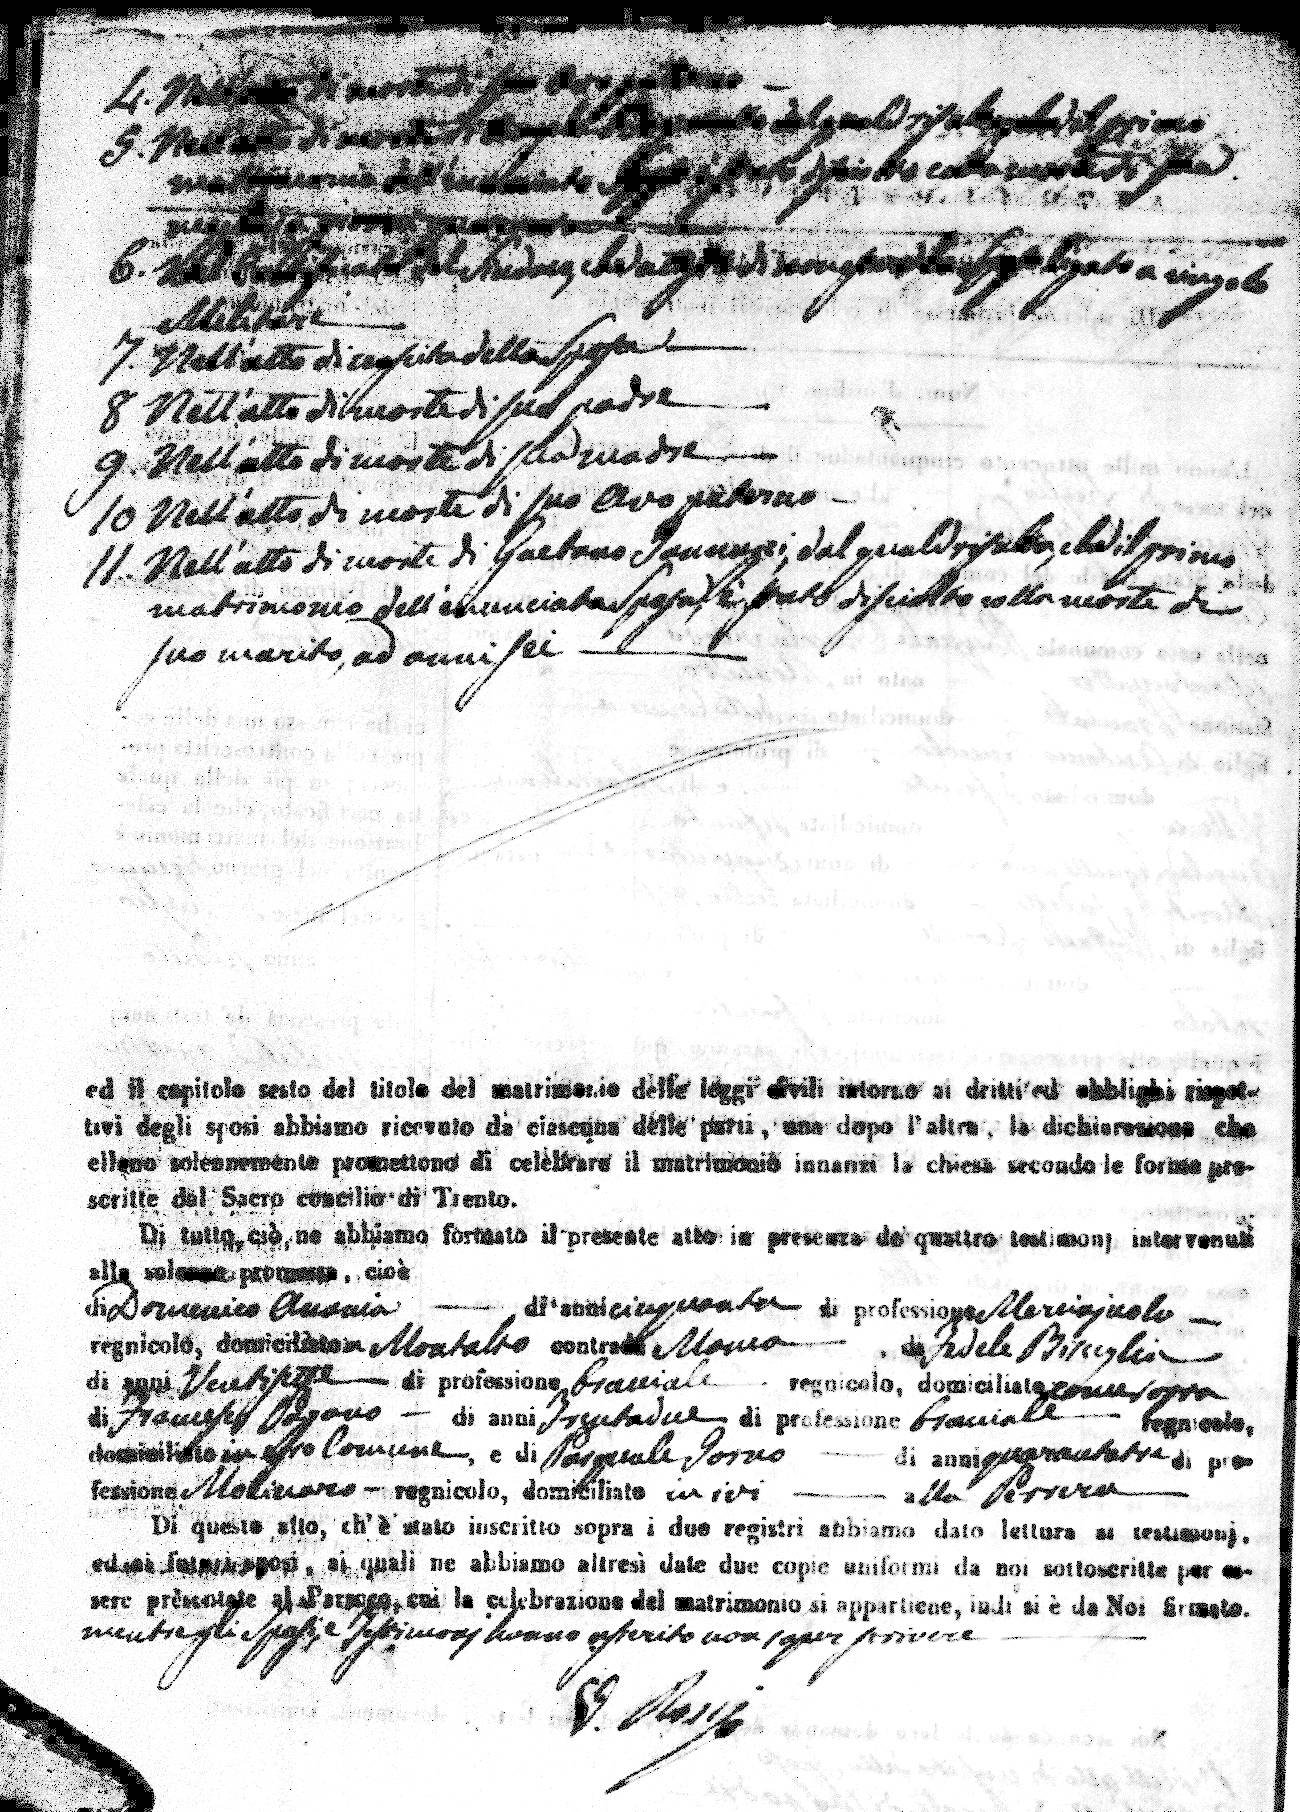 4. Nell'atto di morte di suo Avo paterno
5. Nell'atto di morte di dal quale risulta, che il primo
matrimonio dell'enunciato Sposo è stato disciolto colla morte di sua
6. Nel Certificato del Sindaco, che attesta di non essere lo Sposo ligato a vincolo
Militare
7. Nell'atto di nascita della Sposa
8 Nell'atto di morte di suo padre
9. Nell'atto di morte di sua madre
10 Nell'atto di morte di suo Avo paterno
11. Nell'atto di morte di Gaetano Iannuzzi, dal quale risulta, che il primo
matrimonio dell'enunciata Sposa, è stato disciolto colla morte di
suo marito, ad anni sei
ed il capitolo sesto del titolo del matrimonio delle leggi civili intorno ai dritti ed obblighi rispet-
tivi degli sposi abbiamo ricevuto da ciascuna delle parti, una dopo l'altra, la dichiarazione che
elleno solennemente promettono di celebrare il matrimonio innanzi la chiesa secondo le forme pre-
scritte dal Sacro concilio di Trento.
Di tutto ciò, ne abbiamo formato il presente atto in presenza de quattro testimonj intervenuti
alla solenne promessa, cioè
di Domenico Anania di anni cinquanta di professione Merciajuolo
regnicolo, domiciliato in Montalto contrada Monaco, di Fedele Bisceglia
di anni Ventisette di professione bracciale regnicolo, domiciliato come sopra
di Francesco Pagano di anni Trentadue di professione bracciale regnicolo,
domiciliato in esso Comune, e di Pasquale Torno di anni quarantatre di pro-
fessione Molinaro regnicolo, domiciliato in ivi alla Perrera
Di questo atto, ch'è stato inscritto sopra i due registri abbiamo dato lettura ai testimonj,
ed ai futuri sposi, ai quali ne abbiamo altresì date due copie uniformi da noi sottoscritte per es-
sere presentate al Parroco, cui la celebrazione del matrimonio si appartiene, indi si è da Noi firmato.
mentre gli Sposi, e Testimonj hanno asserito non saper scrivere
Rossi